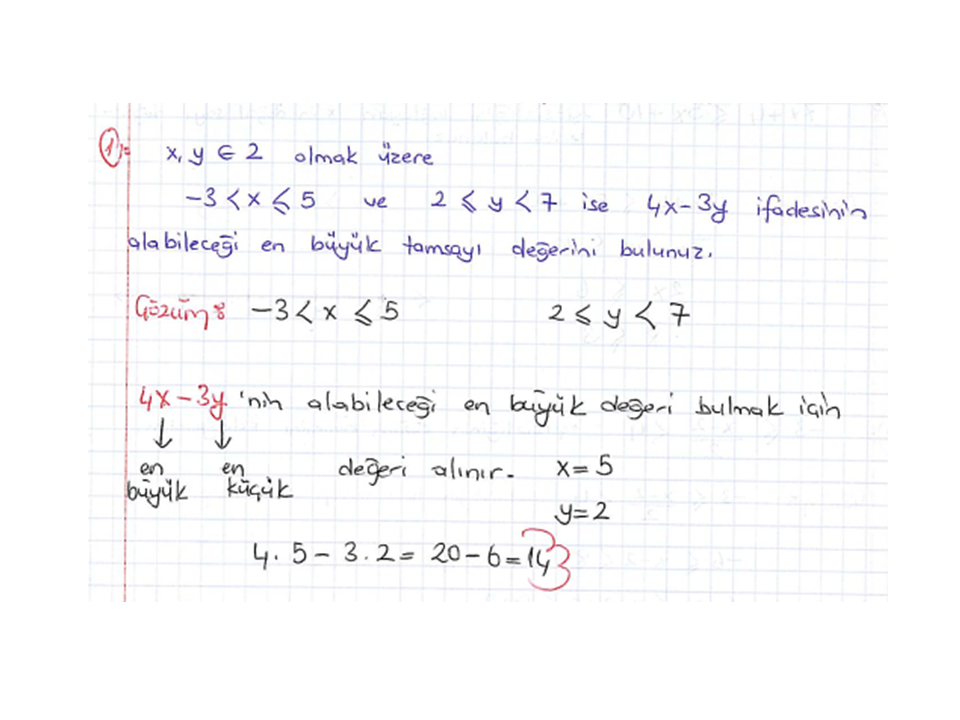 1)= x, y ∈ Z olmak üzere
-3 < x ⩽ 5 ve 2 ⩽ y < 7 ise 4x-3y ifadesinin
alabileceği en büyük tamsayı değerini bulunuz.
Çözüm: -3 < x ⩽ 5 2 ⩽ y < 7
4x-3y 'nin alabileceği en büyük değeri bulmak için
↓ ↓
en büyük en küçük değeri alınır. x=5
y=2
4.5-3.2= 20-6=14